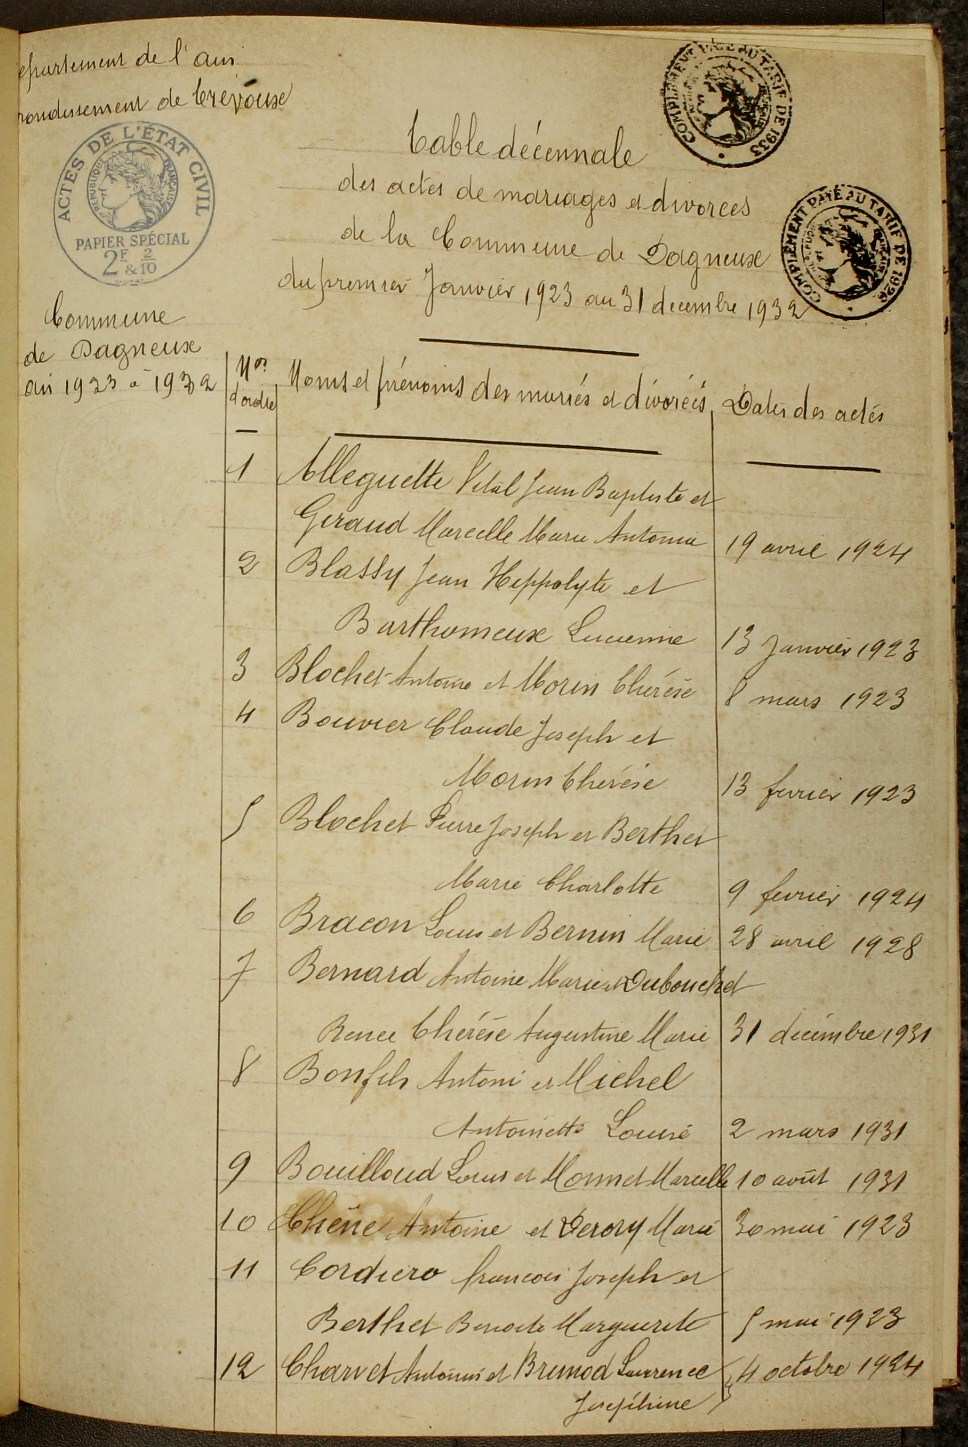 epartement de l'ain
rondissement de Trévoux
ACTES DE L'ÉTAT CIVIL
RÉPUBLIQUE FRANÇAISE
PAPIER SPÉCIAL
2F 2/10
& 10
COMPLÉMENT PAYÉ AU TARIF DE 1933
COMPLÉMENT PAYÉ AU TARIF DE 1926
Table décennale
des actes de mariages et divorces
de la Commune de Dagneux
du premier Janvier 1923 au 31 decembre 1932
Commune
de Dagneux
an 1923 à 1932
Nos d'ordre
Noms et prénoms des mariés et divorcés
Dates des actes
1 Alleguette Vital Jean Baptiste et
Geraud Marcelle Marie Antonia 19 avril 1924
2 Blassy Jean Hippolyte et
Barthomeux Lucienne 13 Janvier 1923
3 Blochet Antoine et Morin Thérèse 8 mars 1923
4 Bouvier Claude Joseph et
Morin Thérèse 13 fevrier 1923
5 Blochet Pierre Joseph et Berthet
Marie Charlotte 9 fevrier 1924
6 Bracon Louis et Bernin Marie 28 avril 1928
7 Bernard Antoine Marie et Dubouchet
Renee Thérèse Augustine Marie 31 décembre 1931
8 Bonfils Antoni et Michel
Antoinette Louise 2 mars 1931
9 Bouilloud Louis et Monnet Marcelle 10 août 1931
10 Chêne Antoine et Derory Marie 30 mai 1923
11 Cordiero francois Joseph et
Berthet Benoite Marguerite 5 mai 1923
12 Charvet Antonin et Brunod Laurence 4 octobre 1924
Joséphine